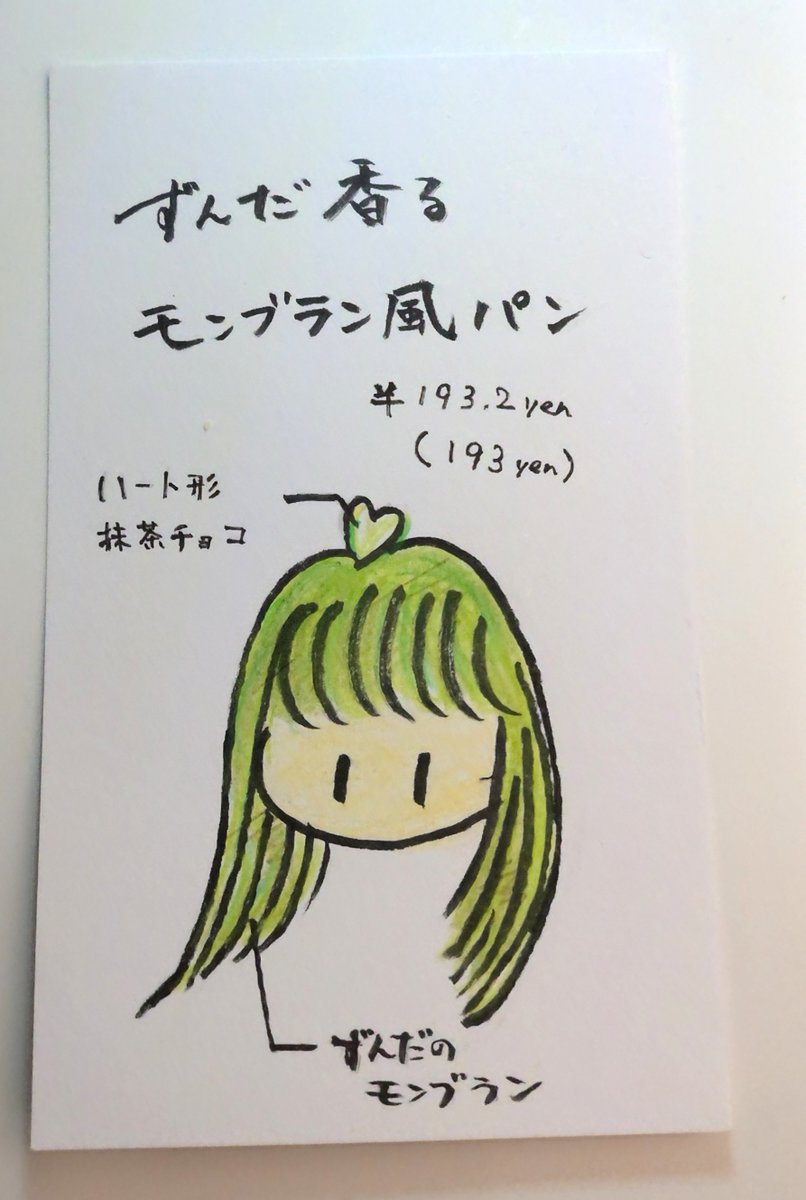 ずんだ香る
モンブラン風パン
¥193.2yen
(193yen)
ハート形
抹茶チョコ
ずんだの
モンブラン